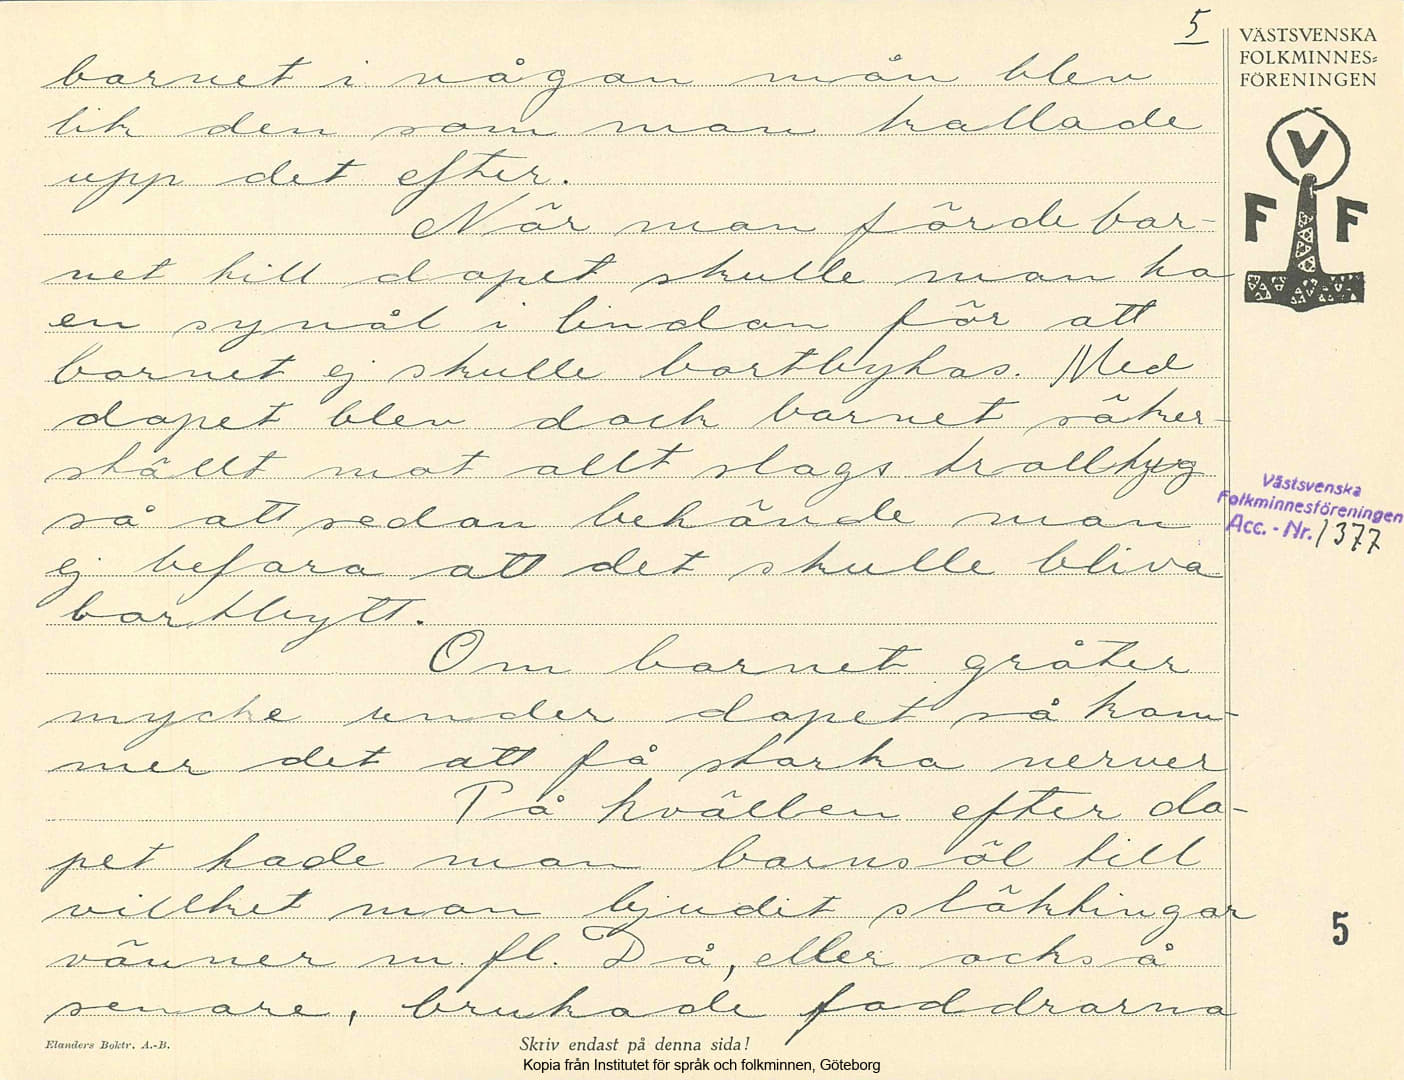 5
VÄSTSVENSKA
FOLKMINNES=
FÖRENINGEN
V
F F
barnet i någan mån blev
lik den som man kallade
upp det efter.
När man förde bar-
net till dopet skulle man ha
en synål i lindan för att
barnet ej skulle bortbytas. Med
dopet blev dock barnet säker-
ställt mot allt slags trolltyg
så att sedan behövde man
ej befara att det skulle bliva
bortbytt.
Om barnet gråter
mycke under dopet så kom-
mer det att få starka nerver
På kvällen efter do-
pet hade man barnsöl till
villket man bjudit släktingar
vänner m. fl. Då, eller också
senare, brukade faddrarna
Västsvenska
Folkminnesföreningen
Acc. - Nr. 1377
5
Elanders Boktr. A.-B.
Skriv endast på denna sida!
Kopia från Institutet för språk och folkminnen, Göteborg